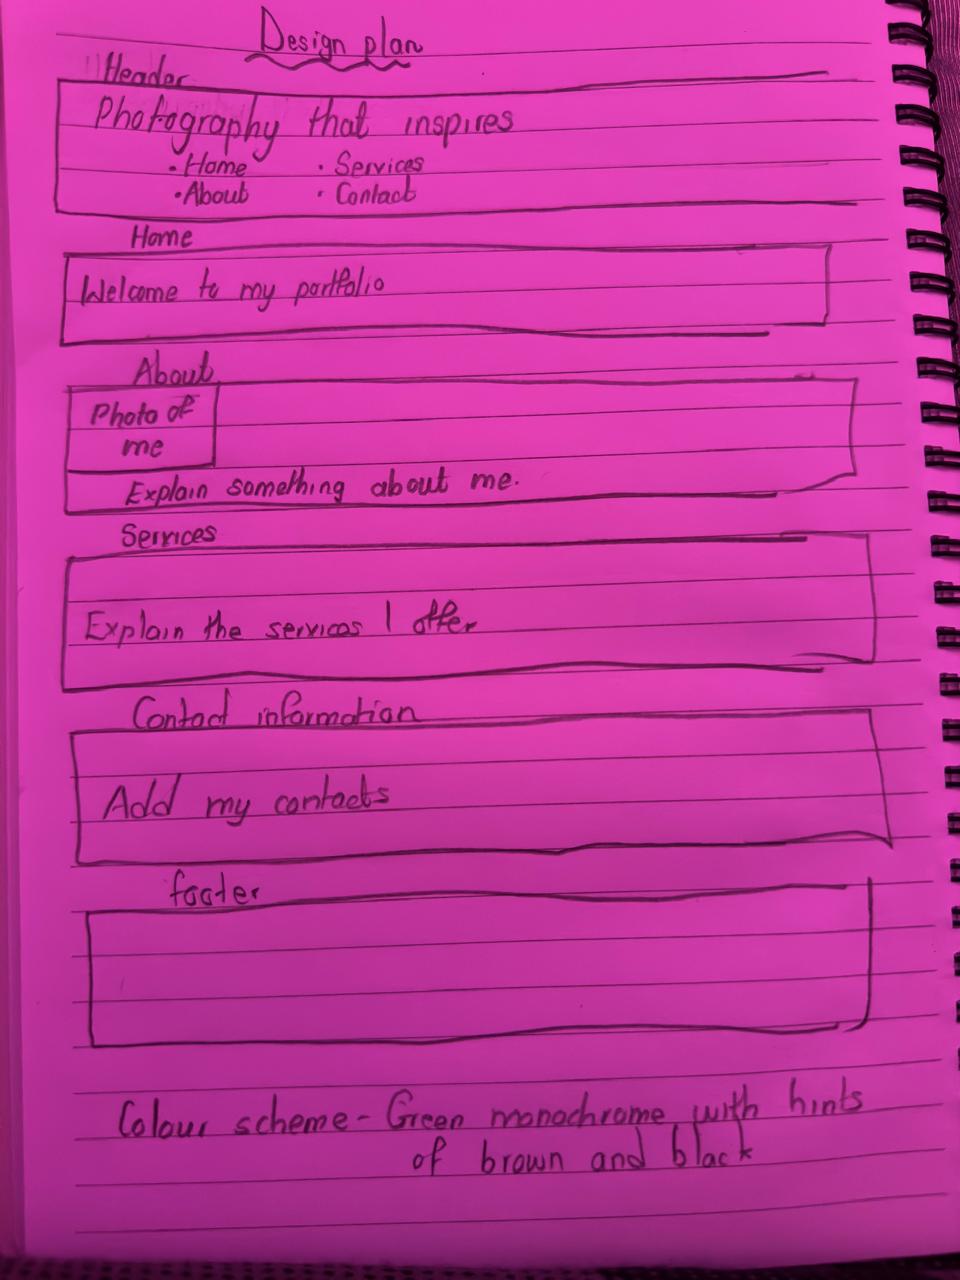 Design plan
Header
Photography that inspires
• Home • Services
• About • Contact
Home
Welcome to my portfolio
About
Photo of
me
Explain something about me.
Services
Explain the services I offer
Contact information
Add my contacts
footer
Colour scheme - Green monochrome with hints
of brown and black